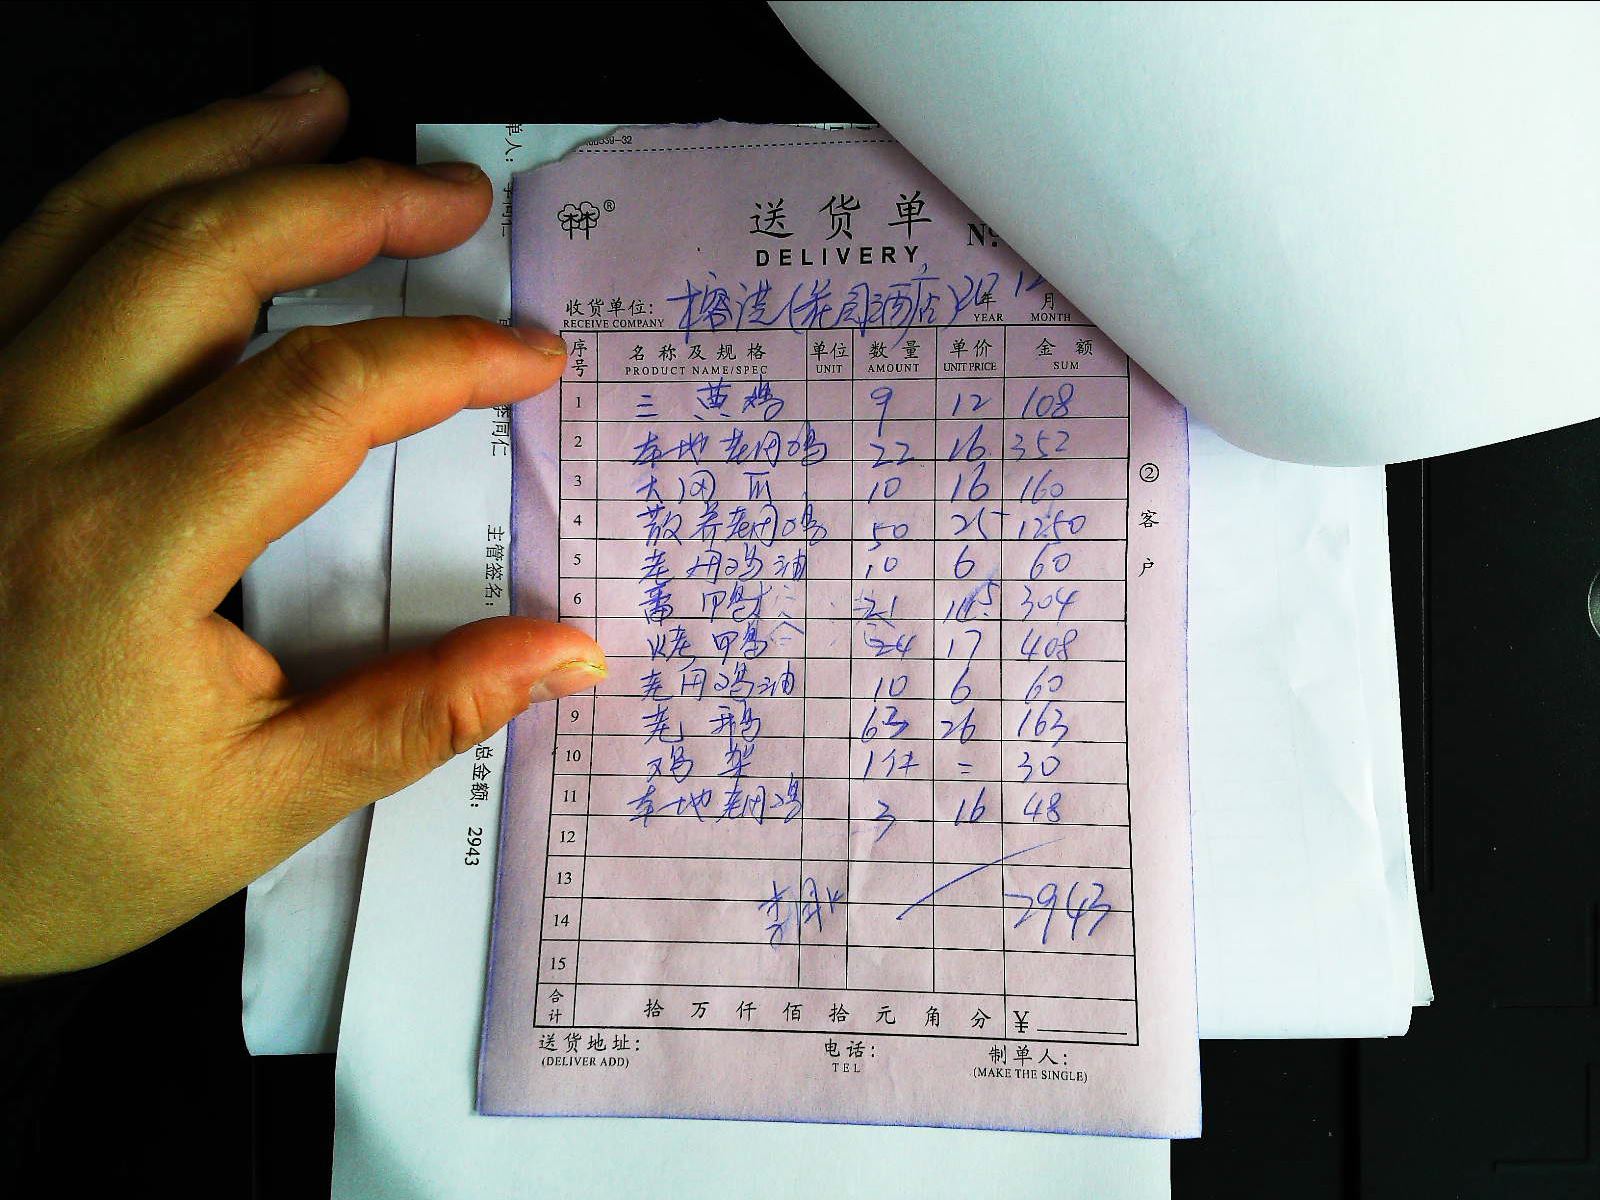 送货单
DELIVERY
No.
收货单位: 榕港(花园酒店) 2017年 12月
RECEIVE COMPANY YEAR MONTH
序号 名称及规格 单位 数量 单价 金额
PRODUCT NAME/SPEC UNIT AMOUNT UNIT PRICE SUM
1 三黄鸡 9 12 108
2 本地老用鸡 22 16 352
3 10 16 160
4 散养老用鸡 50 25 1250
5 老用鸡油 10 6 60
6 番甲鸟 21 14.5 304
烤甲鸟 24 17 408
老用鸡油 10 6 60
9 老鹅 63 26 163
10 鸡架 1件 = 30
11 本地老用鸡 3 16 48
12
13
14 2943
15
合计 拾 万 仟 佰 拾 元 角 分 ¥
送货地址: 电话: 制单人:
(DELIVER ADD) TEL (MAKE THE SINGLE)
②客户
单人:
李同仁
主管签名:
总金额: 2943